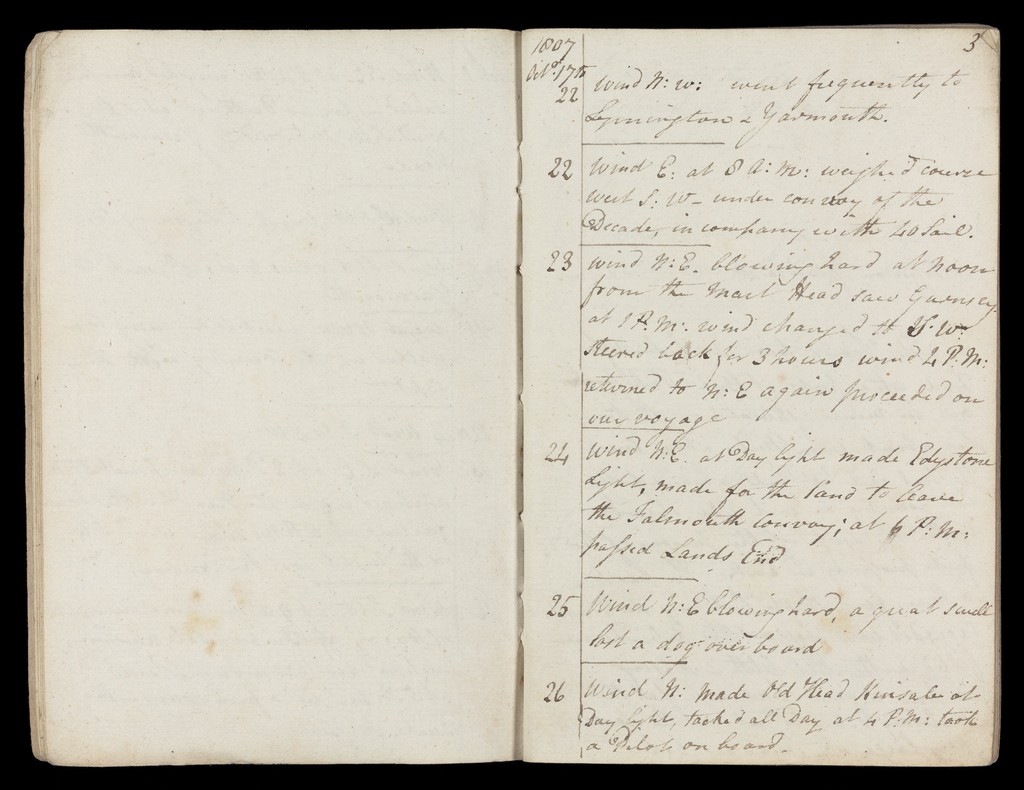 1807
3
Octr. 17th
22 Wind N: W: went frequently to
Lymington & Yarmouth.
22 Wind E: at 8 A: M: weighed course
West S: W- under convoy of the
Decade, in company with 40 Sail.
23 Wind N: E. blowing hard at noon
from the Mast Head saw Guernsey
at 1 P: M: wind changed to S: W:
steered back for 3 hours wind 4 P: M:
returned to N: E again proceeded on
our voyage
24 Wind N: E. at Day light made Edystone
Light, made for the land to leave
the Falmouth convoy; at 6 P: M:
passed Lands End
25 Wind N: E blowing hard, a great swell
lost a dog over board
26 Wind N: made Old Head Kinsale at
Day light, tacked all Day at 4 P: M: took
a Pilot on board.